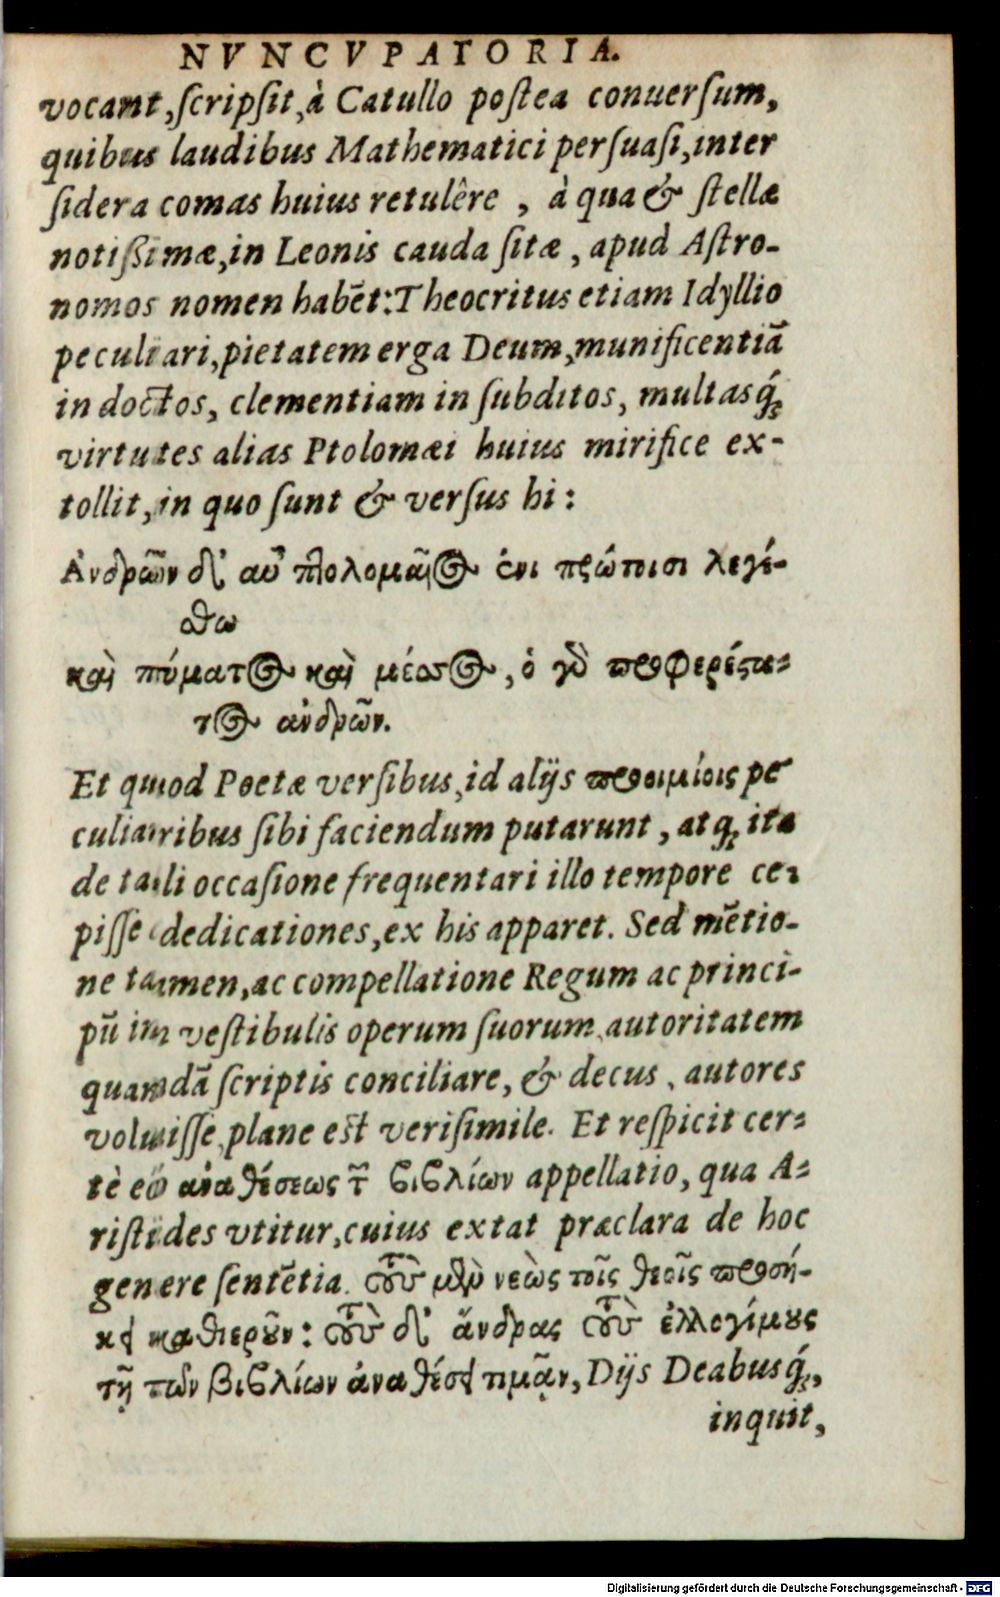 NVNCVPATORIA.
vocant, ſcripſit, à Catullo poſtea conuerſum,
quibus laudibus Mathematici perſuaſi, inter
ſidera comas huius retulêre , à qua & ſtellæ
notiſſimæ, in Leonis cauda ſitæ , apud Aſtro-
nomos nomen habẽt: Theocritus etiam Idyllio
peculiari, pietatem erga Deum, munificentiã
in doctos, clementiam in ſubditos, multasq́;
virtutes alias Ptolomæi huius mirifice ex-
tollit, in quo ſunt & verſus hi:
Ἀνδρῶν δ' αὖ πτολομαῖος ἐνι πρώτοισι λεγέ-
σθω
καὶ πύματος καὶ μέσος, ὁ γὸ προφερέστε-
τος ἀνδρῶν.
Et quod Poetæ verſibus, id alijs προοιμίοις pe
culiaribus ſibi faciendum putarunt , atq; ita
de tali occaſione frequentari illo tempore ce-
piſſe dedicationes, ex his apparet. Sed mẽtio-
ne tamen, ac compellatione Regum ac princi-
pũ in veſtibulis operum ſuorum, autoritatem
quandã ſcriptis conciliare, & decus , autores
voluiſſe, plane eſt veriſimile. Et reſpicit cer-
tè eò ἀναθέσεως τ͂ βιβλίων appellatio, qua A-
riſtides vtitur, cuius extat præclara de hoc
genere ſentẽtia. τοὺς μὲν νεὼς τοῖς θεοῖς προσή-
κει καθιεροῦν: τοὺς δ' ἄνδρας τοὺς ἐλλογίμους
τῇ τῶν βιβλίων ἀναθέσει τιμᾷν, Dijs Deabusq́;,
inquit,
Digitalisierung gefördert durch die Deutsche Forschungsgemeinschaft - DFG